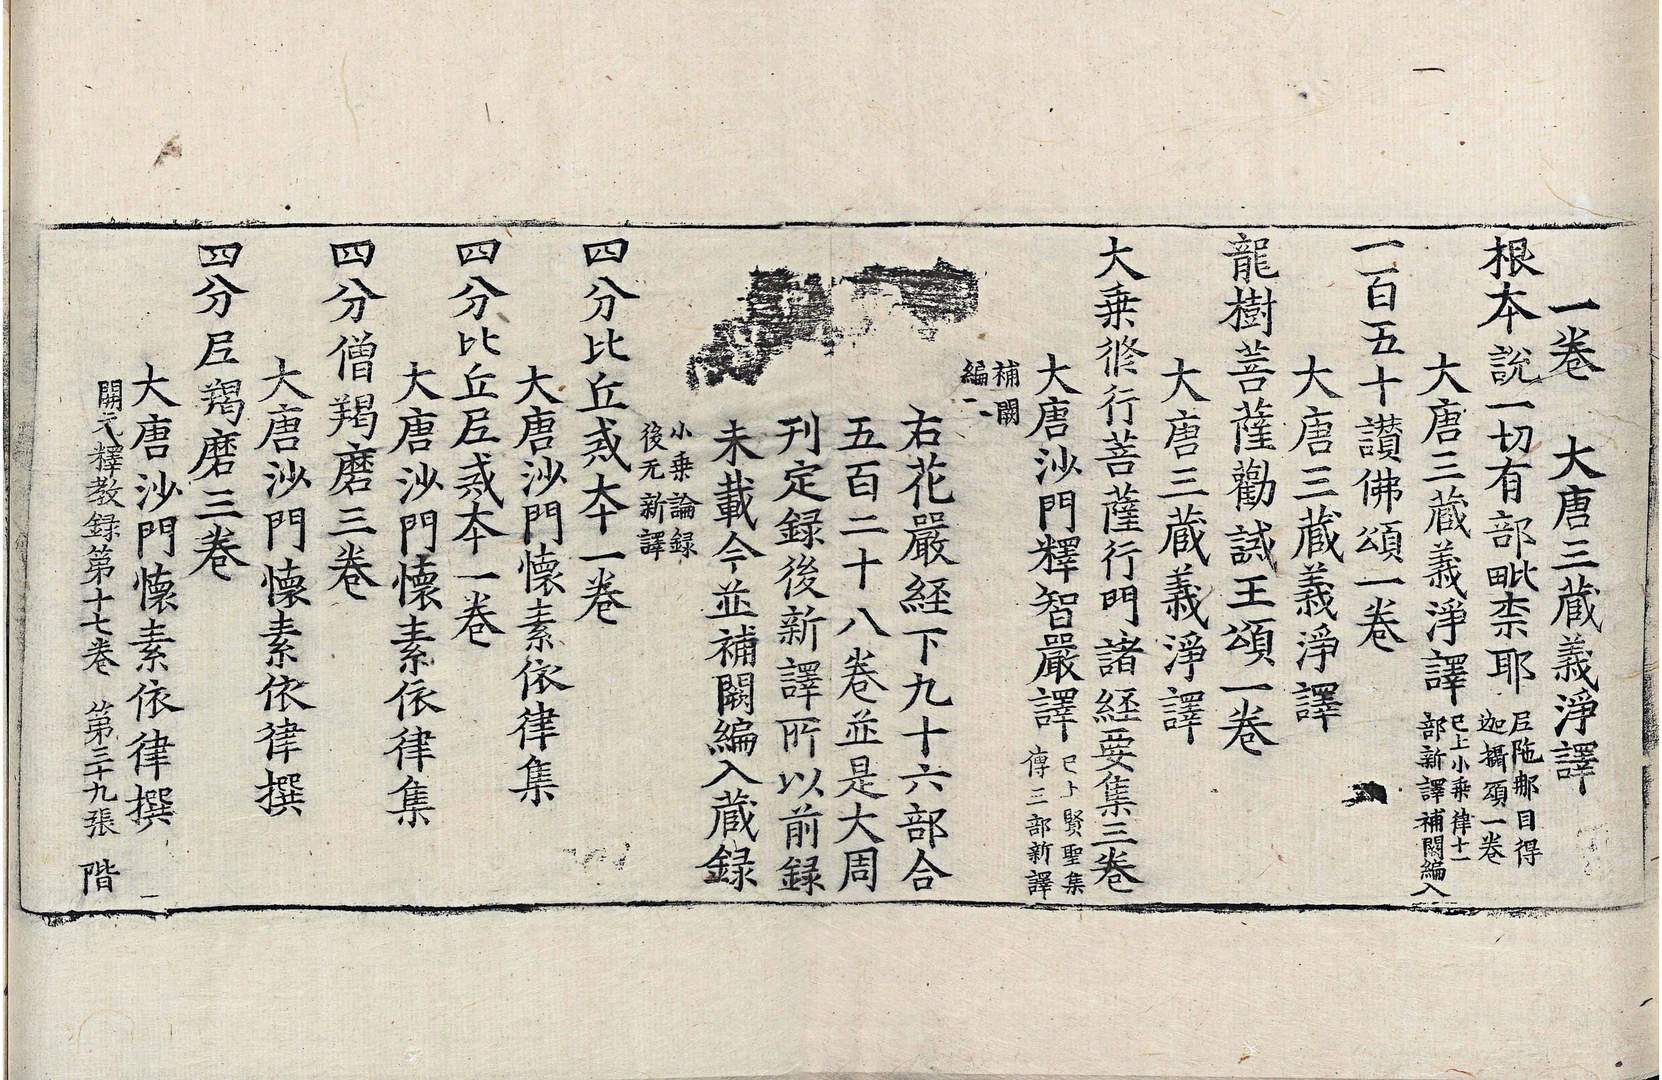 一卷　大唐三藏義淨譯
根本說一切有部毗柰耶
尼陁那目得
迦攝頌一卷
大唐三藏義淨譯
已上小乘律十一
部新譯補闕編入
一百五十讃佛頌一卷
大唐三藏義淨譯
龍樹菩薩勸誡王頌一卷
大唐三藏義淨譯
大乗修行菩薩行門諸経要集三卷
大唐沙門釋智嚴譯
已上賢聖集
傳三部新譯
補闕
編入
右花嚴経下九十六部合
五百二十八卷並是大周
刊定録後新譯所以前録
未載今並補闕編入蔵録
小乗論録
後无新譯
四分比丘戒本一卷
大唐沙門懷素依律集
四分比丘尼戒本一卷
大唐沙門懷素依律集
四分僧羯磨三卷
大唐沙門懷素依律撰
四分尼羯磨三卷
大唐沙門懷素依律撰
開元釋教録第十七卷　第三十九張　階